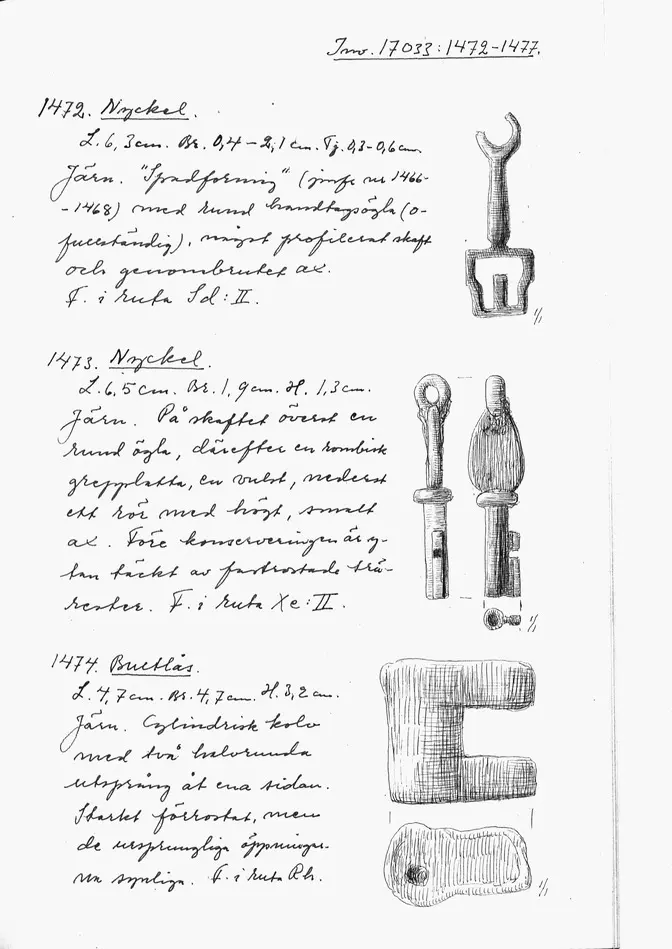 Inv. 17033:1472-1477.
1472. Nyckel.
L. 6,3 cm. Br. 0,4-2,1 cm. Tj. 0,3-0,6 cm.
Järn. "Spadformig" (jmfr nr 1466-
-1468) med rund handtagsögla (o-
fullständig), något profilerat skaft
och genombrutet ax.
F. i ruta Sd:II.
1/1
1473. Nyckel.
L. 6,5 cm. Br. 1,9 cm. H. 1,3 cm.
Järn. På skaftet överst en
rund ögla, därefter en rombisk
greppplatta, en vulst, nederst
ett rör med högt, smalt
ax. Före konserveringen är y-
tan täckt av fastrostade trä-
rester. F. i ruta Xe:II.
1/1
1474. Bultlås.
L. 4,7 cm. Br. 4,7 cm. H. 3,2 cm.
Järn. Cylindrisk kolv
med två halvrunda
utsprång åt ena sidan.
Starkt förrostat, men
de ursprungliga öppningar-
na synliga. F. i ruta Rh.
1/1